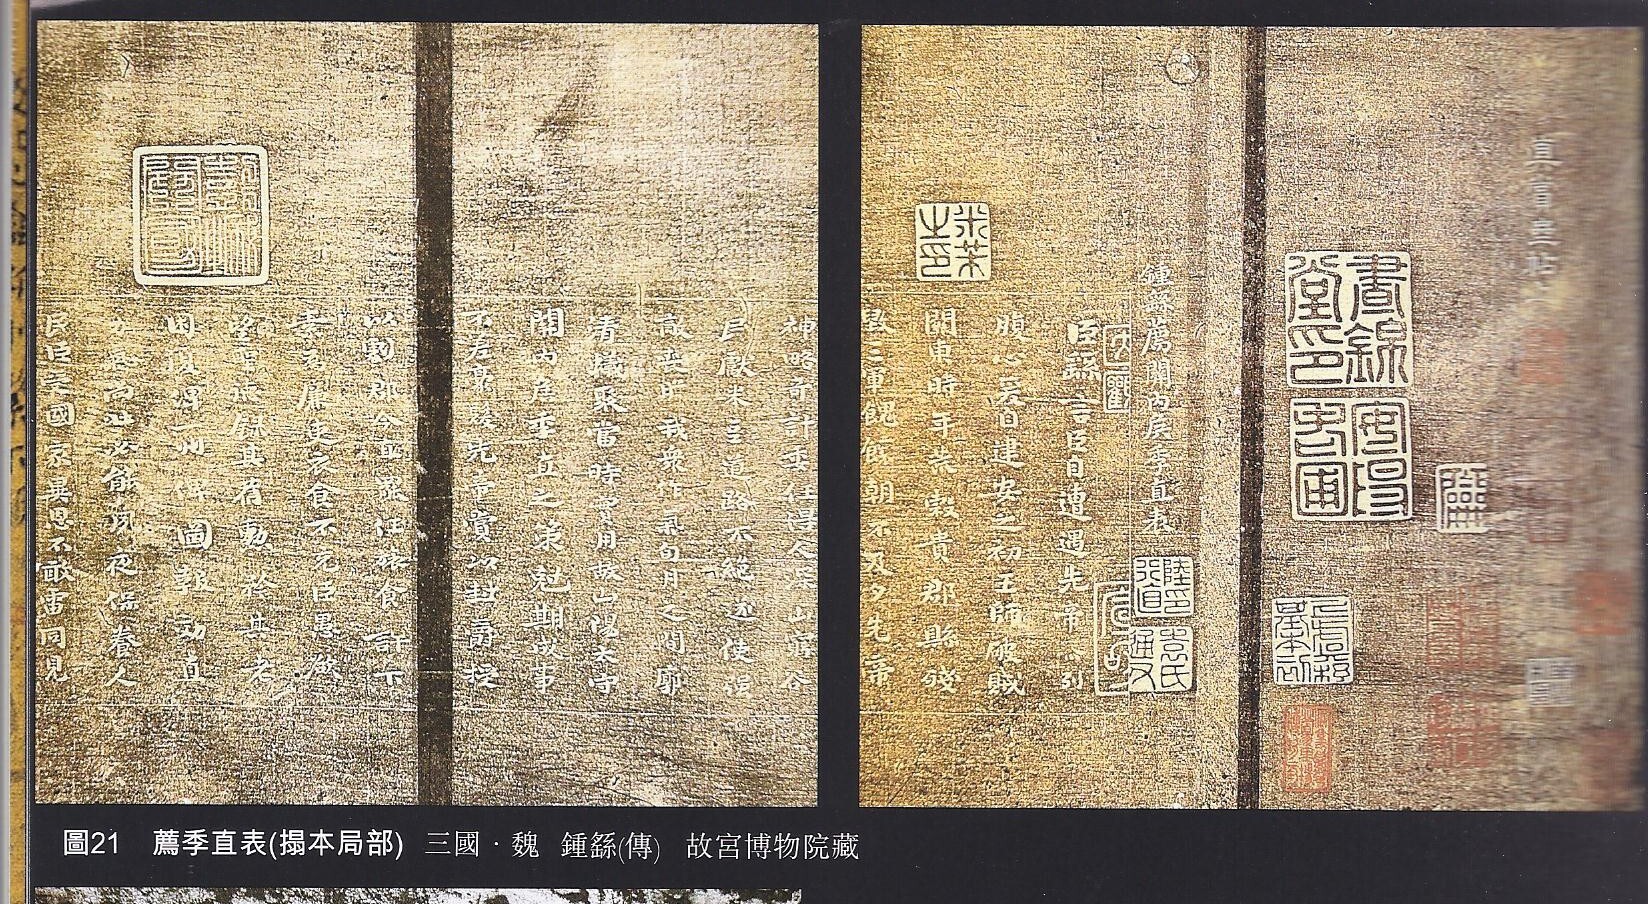 真賞齋帖
書錦堂印
鍾繇薦關內侯季直表
米芾之印
臣繇言臣自遭遇先帝忝列
腹心爰自建安之初王師破賊
關東時年荒穀貴郡縣殘
毀三軍餽饟朝不及夕先帝
神略奇計委任得人深山窮谷
民獻米豆道路不絕遂使強
敵喪膽我衆作氣旬月之間廓
清蟻聚當時實用故山陽太守
關內侯季直之策剋期成事
不差豪髮先帝賞以封爵授
以劇郡今直罷任旅食許下
素為廉吏衣食不充臣愚欲
望聖德錄其舊勳矜其老
困復俾一州俾圖報效直
力氣尚壯必能夙夜保養人
民臣受國家異恩不敢雷同見
圖21 薦季直表(搨本局部) 三國·魏 鍾繇(傳) 故宮博物院藏